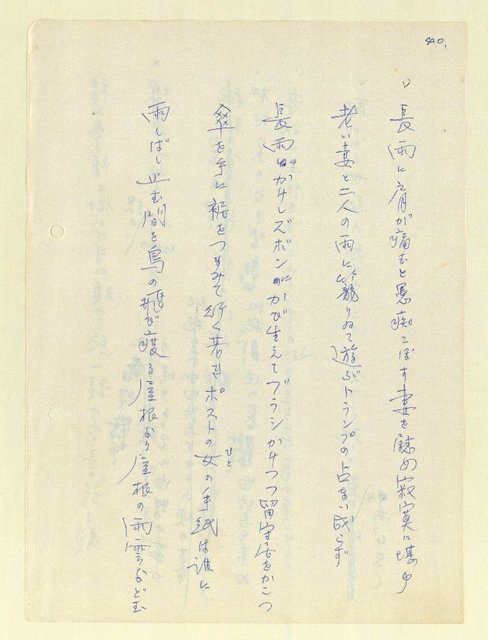 40.
長雨に肩が痛むと愚痴こぼす妻を慰め寂寞に堪ゆ
老い妻と二人の雨に籠りゐて遊ぶトランプの占ない成らず
長雨にかけしズボンにかび生えてブラシかけつつ留守居をかこつ
傘を手に裾をつまみて行く若きポストの女の手紙は誰に
ひと
雨しばし止む間を鳥の飛び渡る屋根から屋根の雨雲